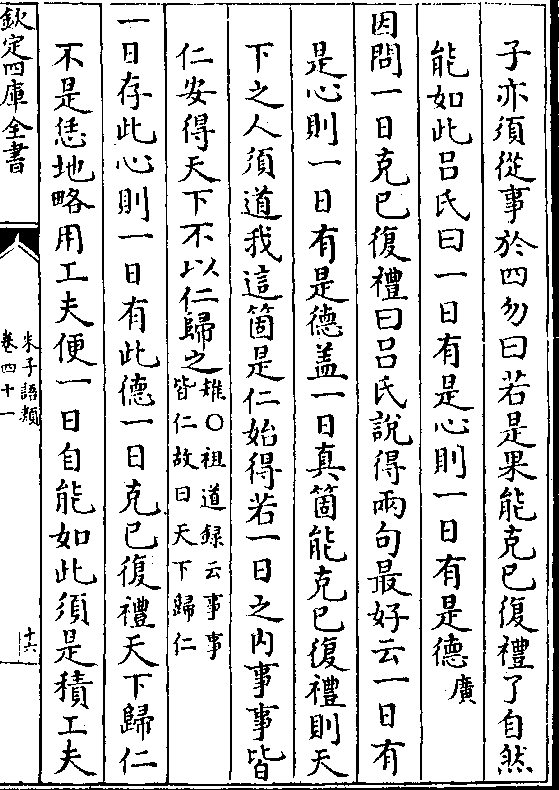 子亦須從事於四勿曰若是果能克已復禮了自然
能如此吕氏曰一日有是心則一日有是德廣
因問一日克已復禮曰吕氏說得兩句最好云一日有
是心則一日有是德盖一日真箇能克已復禮則天
下之人須道我這箇是仁始得若一日之内事事皆
仁安得天下不以仁歸之雉○祖道録云事事
皆仁故曰天下歸仁
一日存此心則一日有此德一日克已復禮天下歸仁
不是恁地略用工夫便一日自能如此須是積工夫
欽定四庫全書
朱子語類
卷四十一
十六